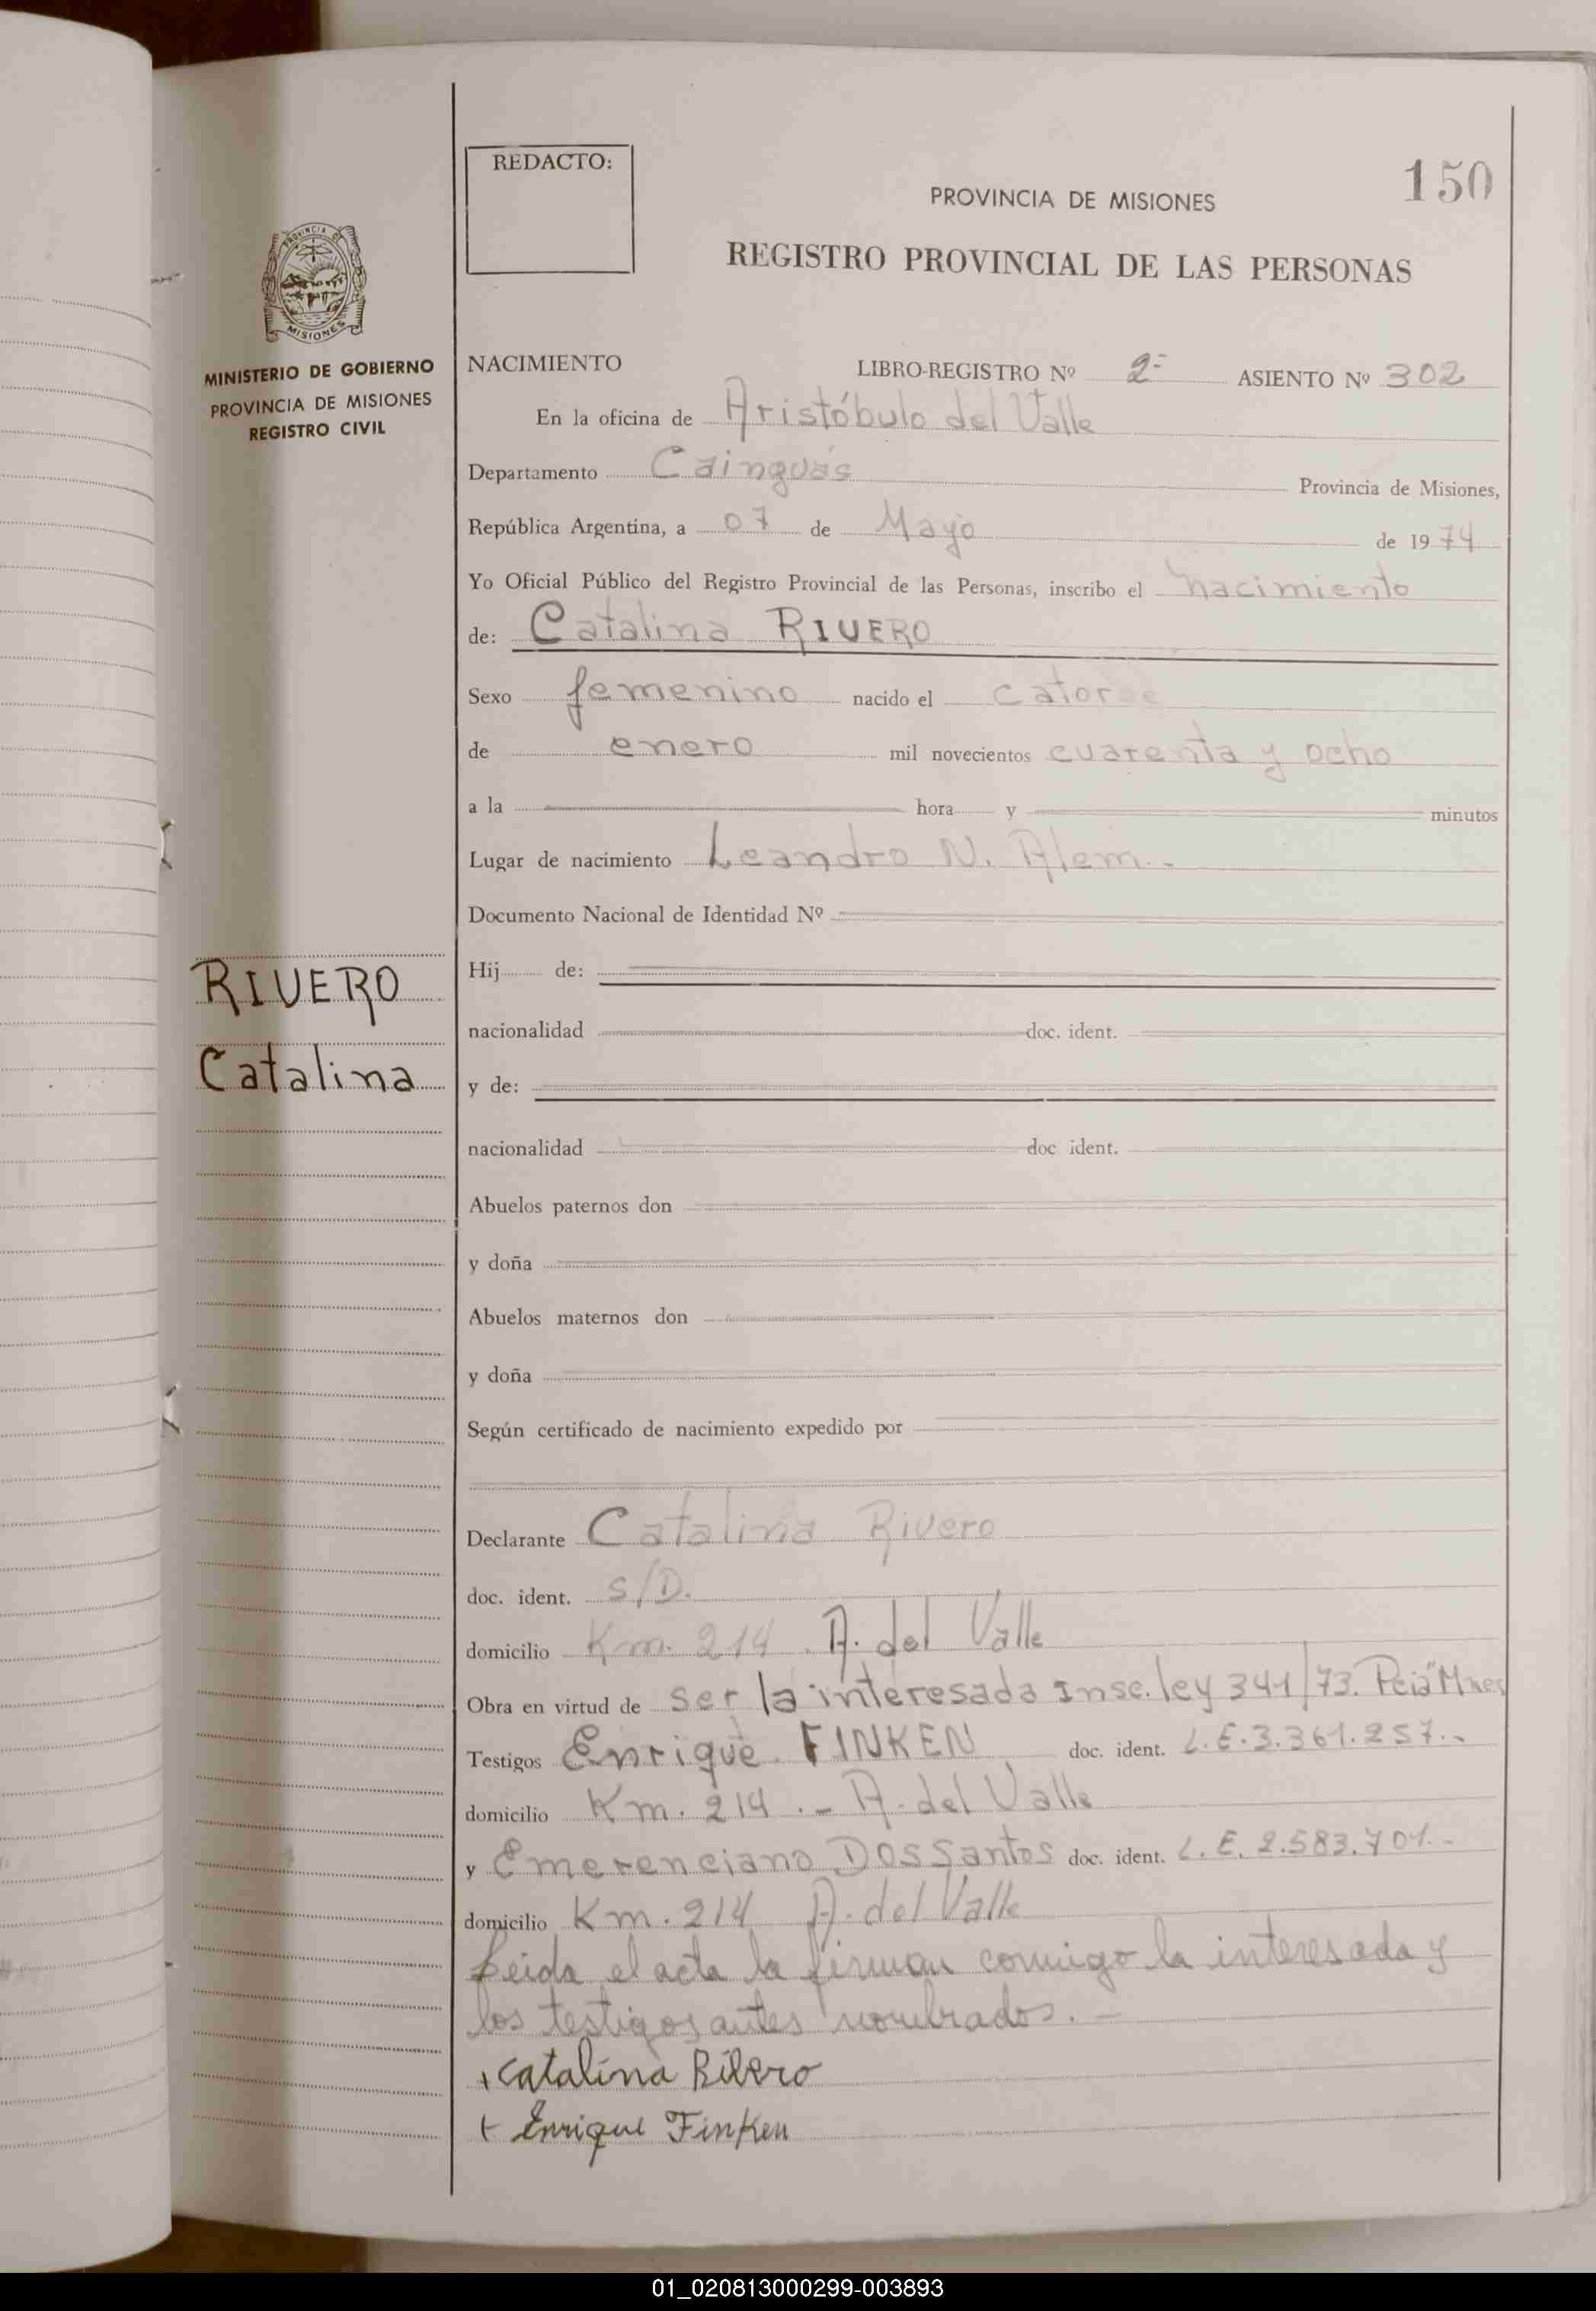 REDACTO:
150
PROVINCIA DE MISIONES
REGISTRO PROVINCIAL DE LAS PERSONAS
PROVINCIA DE
MISIONES
MINISTERIO DE GOBIERNO
PROVINCIA DE MISIONES
REGISTRO CIVIL
NACIMIENTO LIBRO-REGISTRO Nº 2- ASIENTO Nº 302
En la oficina de Aristóbulo del Valle
Departamento Cainguás Provincia de Misiones,
República Argentina, a 07 de Mayo de 1974
Yo Oficial Público del Registro Provincial de las Personas, inscribo el nacimiento
de: Catalina RIVERO
Sexo femenino nacido el catorce
de enero mil novecientos cuarenta y ocho
a la hora y minutos
Lugar de nacimiento Leandro N. Alem.-
Documento Nacional de Identidad Nº
RIVERO
Catalina
Hij de:
nacionalidad doc. ident.
y de:
nacionalidad doc. ident.
Abuelos paternos don
y doña
Abuelos maternos don
y doña
Según certificado de nacimiento expedido por
Declarante Catalina Rivero
doc. ident. S/D.
domicilio Km. 214. A. del Valle
Obra en virtud de ser la interesada Insc. ley 341/73. Pcia Mnes
Testigos Enrique FINKEN doc. ident. L.E.3.361.257.-
domicilio Km. 214.- A. del Valle
y Emerenciano Dos Santos doc. ident. L.E. 2.583.701.-
domicilio Km. 214 A. del Valle
Leida el acta la firman conmigo la interesada y
los testigos antes nombrados.-
+ catalina Ribero
+ Enrique Finken
01_020813000299-003893